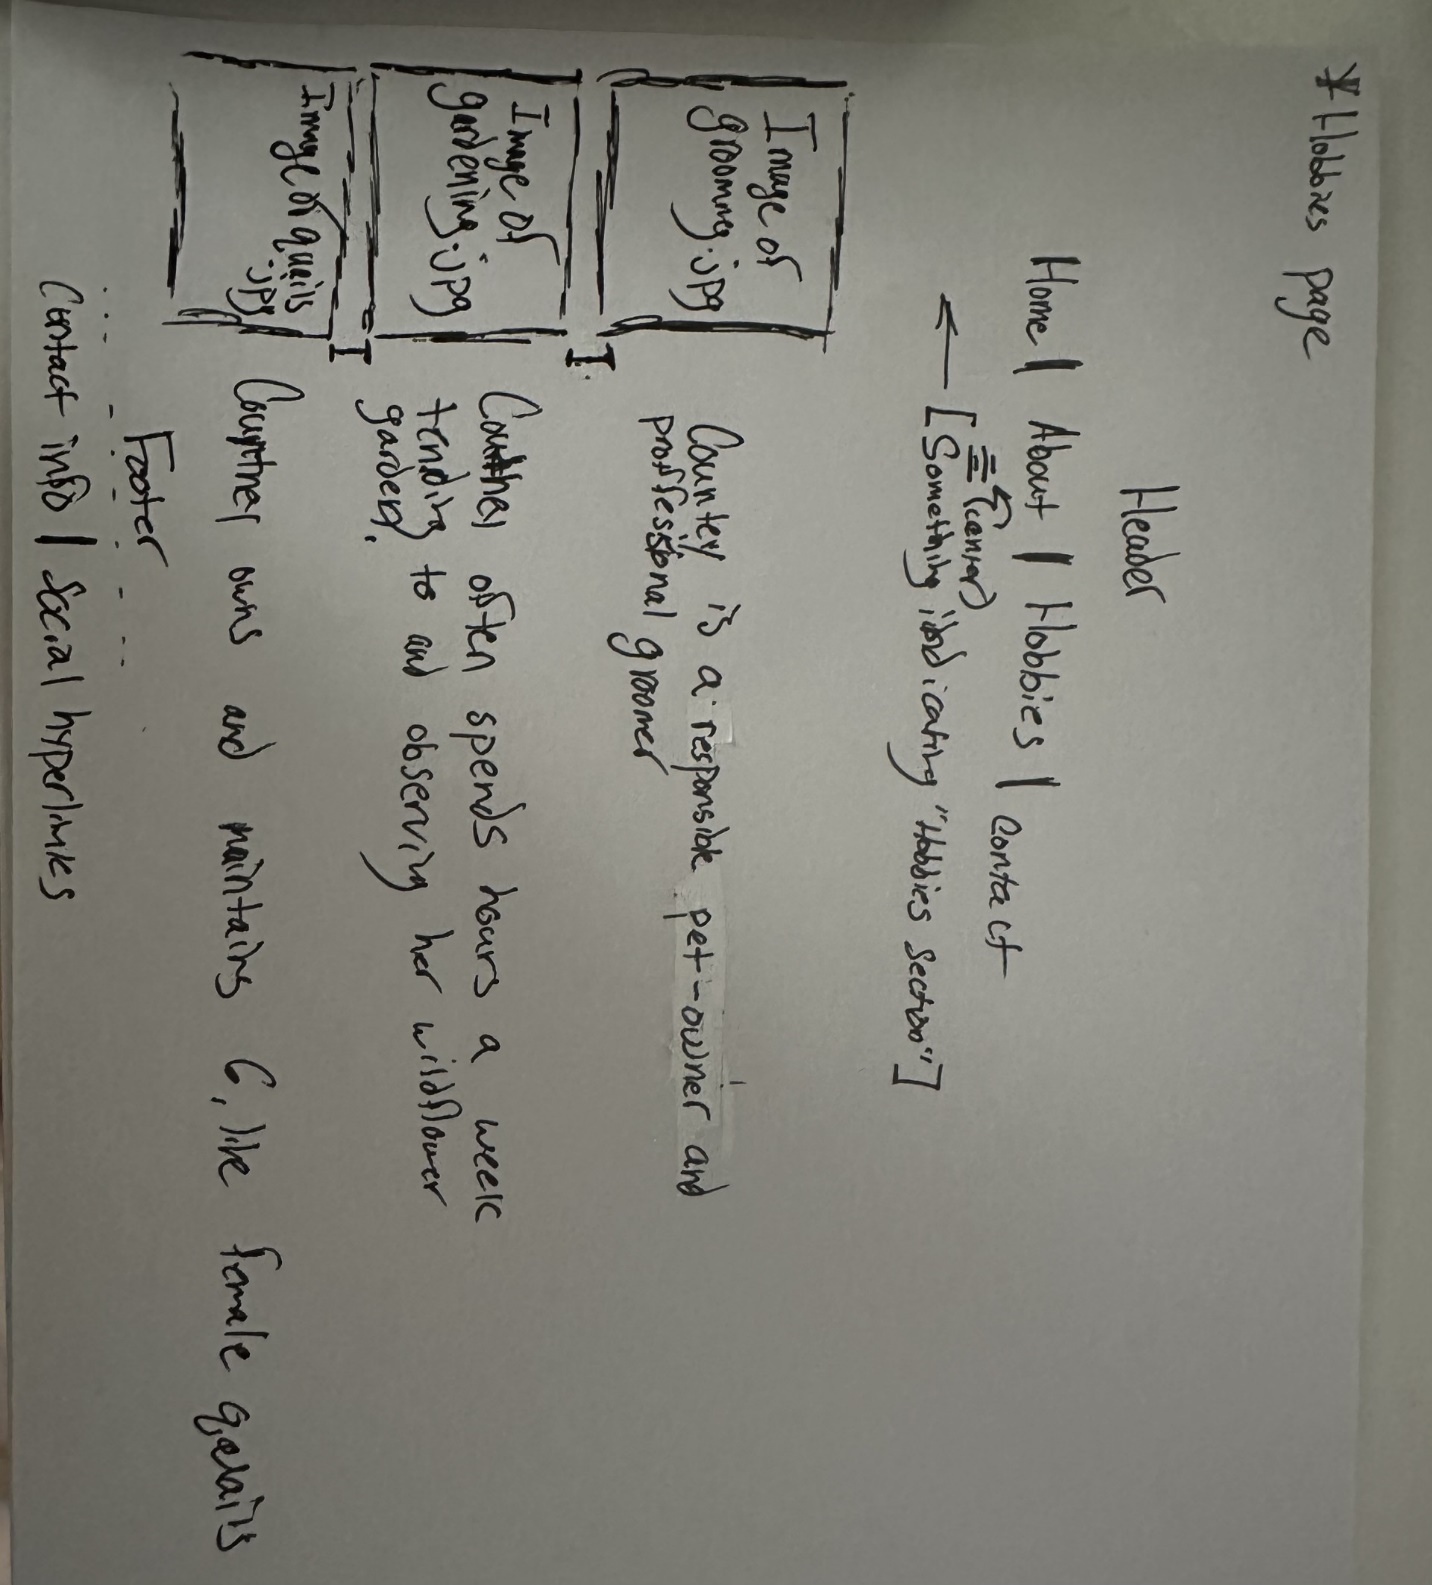 * Hobbies page
Header
Home | About | Hobbies | Contact
(center)
← [Something indicating "Hobbies Section"]
Image of
grooming.jpg
Countey is a responsible pet-owner and
proffessional groomer
Image of
gardening.jpg
often spends hours a week
tending to and observing her wildflower
garden.
Image of quails
.jpg
owns and maintains 6, like female
Footer
Contact info | Social hyperlinks